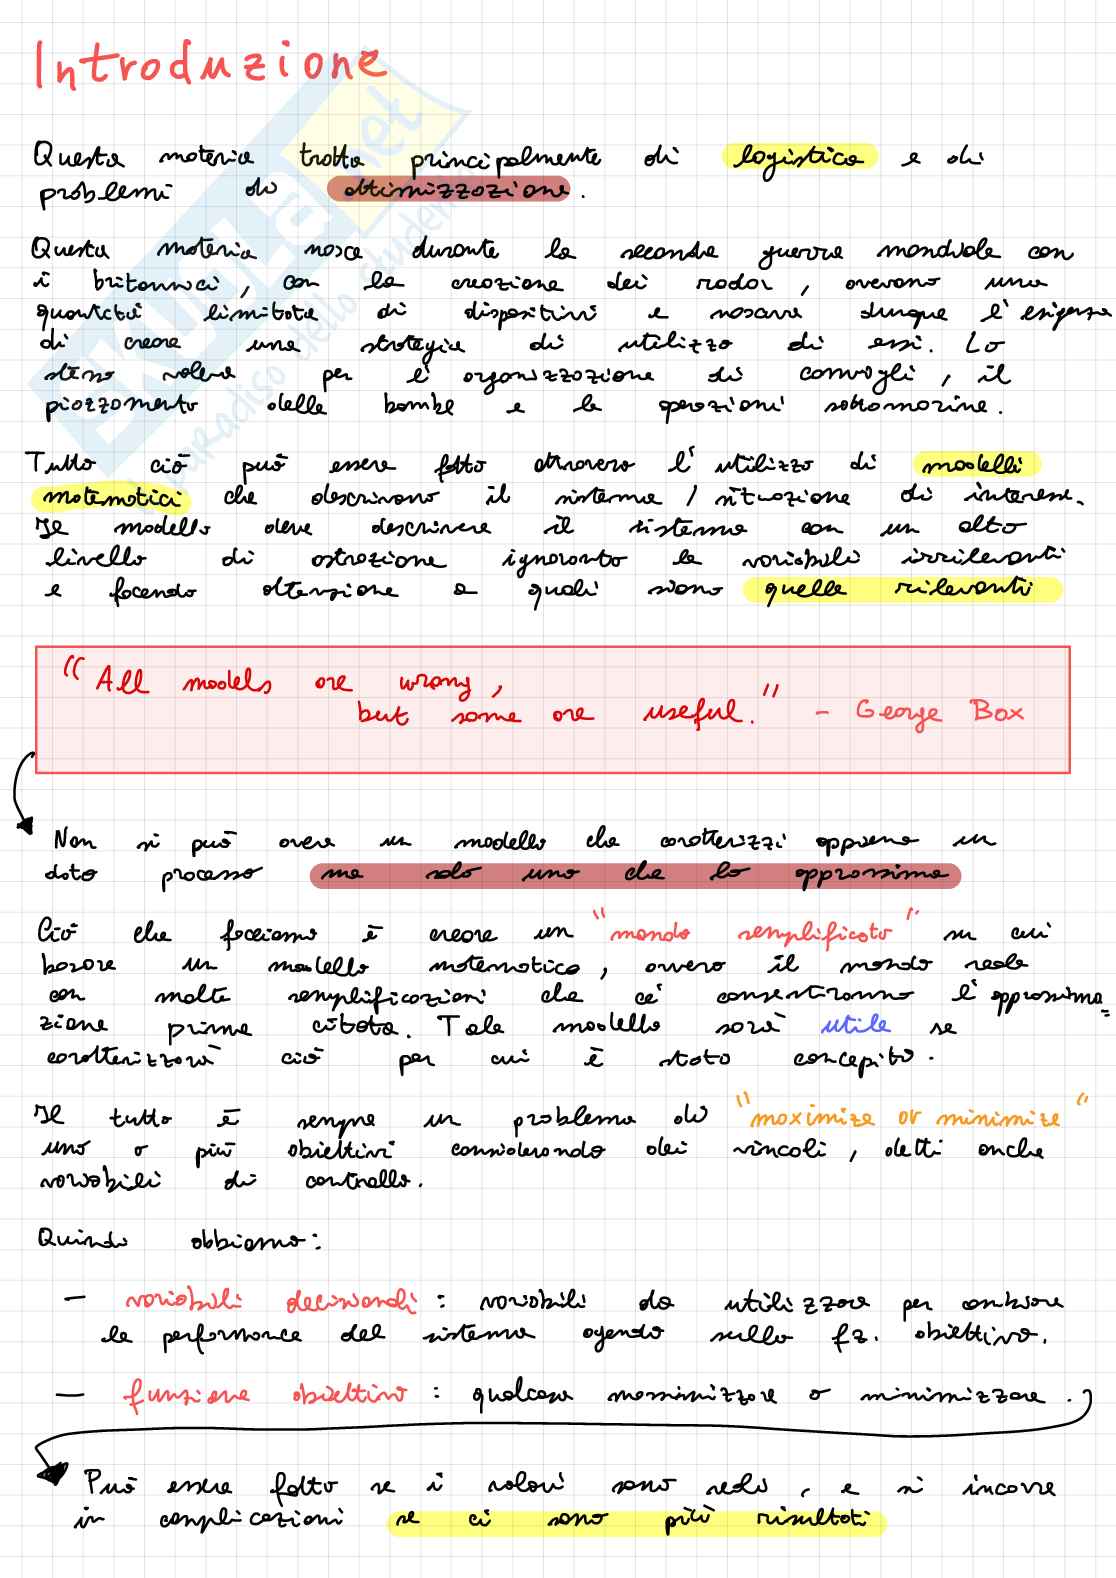 Introduzione
Questa materia tratta principalmente di logistica e di
problemi di ottimizzazione.
Questa materia nasce durante la seconda guerra mondiale con
i britannici, con la creazione dei radar, avevano una
quantità limitata di dispositivi e nasceva dunque l'esigenza
di creare una strategia di utilizzo di essi. Lo
stesso valeva per l'organizzazione di convogli, il
piazzamento delle bombe e le operazioni sottomarine.
Tutto ciò può essere fatto attraverso l'utilizzo di modelli
matematici che descrivono il sistema / situazione di interesse.
Il modello deve descrivere il sistema con un alto
livello di astrazione ignorando le variabili irrilevanti
e facendo attenzione a quali siano quelle rilevanti
"All models are wrong,
but some are useful." - George Box
Non si può avere un modello che caratterizzi appieno un
dato processo ma solo uno che lo approssima
Ciò che facciamo è creare un "mondo semplificato" su cui
basare un modello matematico, ovvero il mondo reale
con molte semplificazioni che ci consentiranno l'approssima
zione prima citata. Tale modello sarà utile se
caratterizzerà ciò per cui è stato concepito.
Il tutto è sempre un problema di "maximize or minimize"
uno o più obiettivi considerando dei vincoli, detti anche
variabili di controllo.
Quindi abbiamo:
- variabili decisionali : variabili da utilizzare per cambiare
le performance del sistema agendo sulla fz. obiettivo.
- funzione obiettivo : qualcosa massimizzare o minimizzare.
Può essere fatto se i valori sono reali, e si incorre
in complicazioni se ci sono più risultati
SKUOLA.net
paradiso dello studente